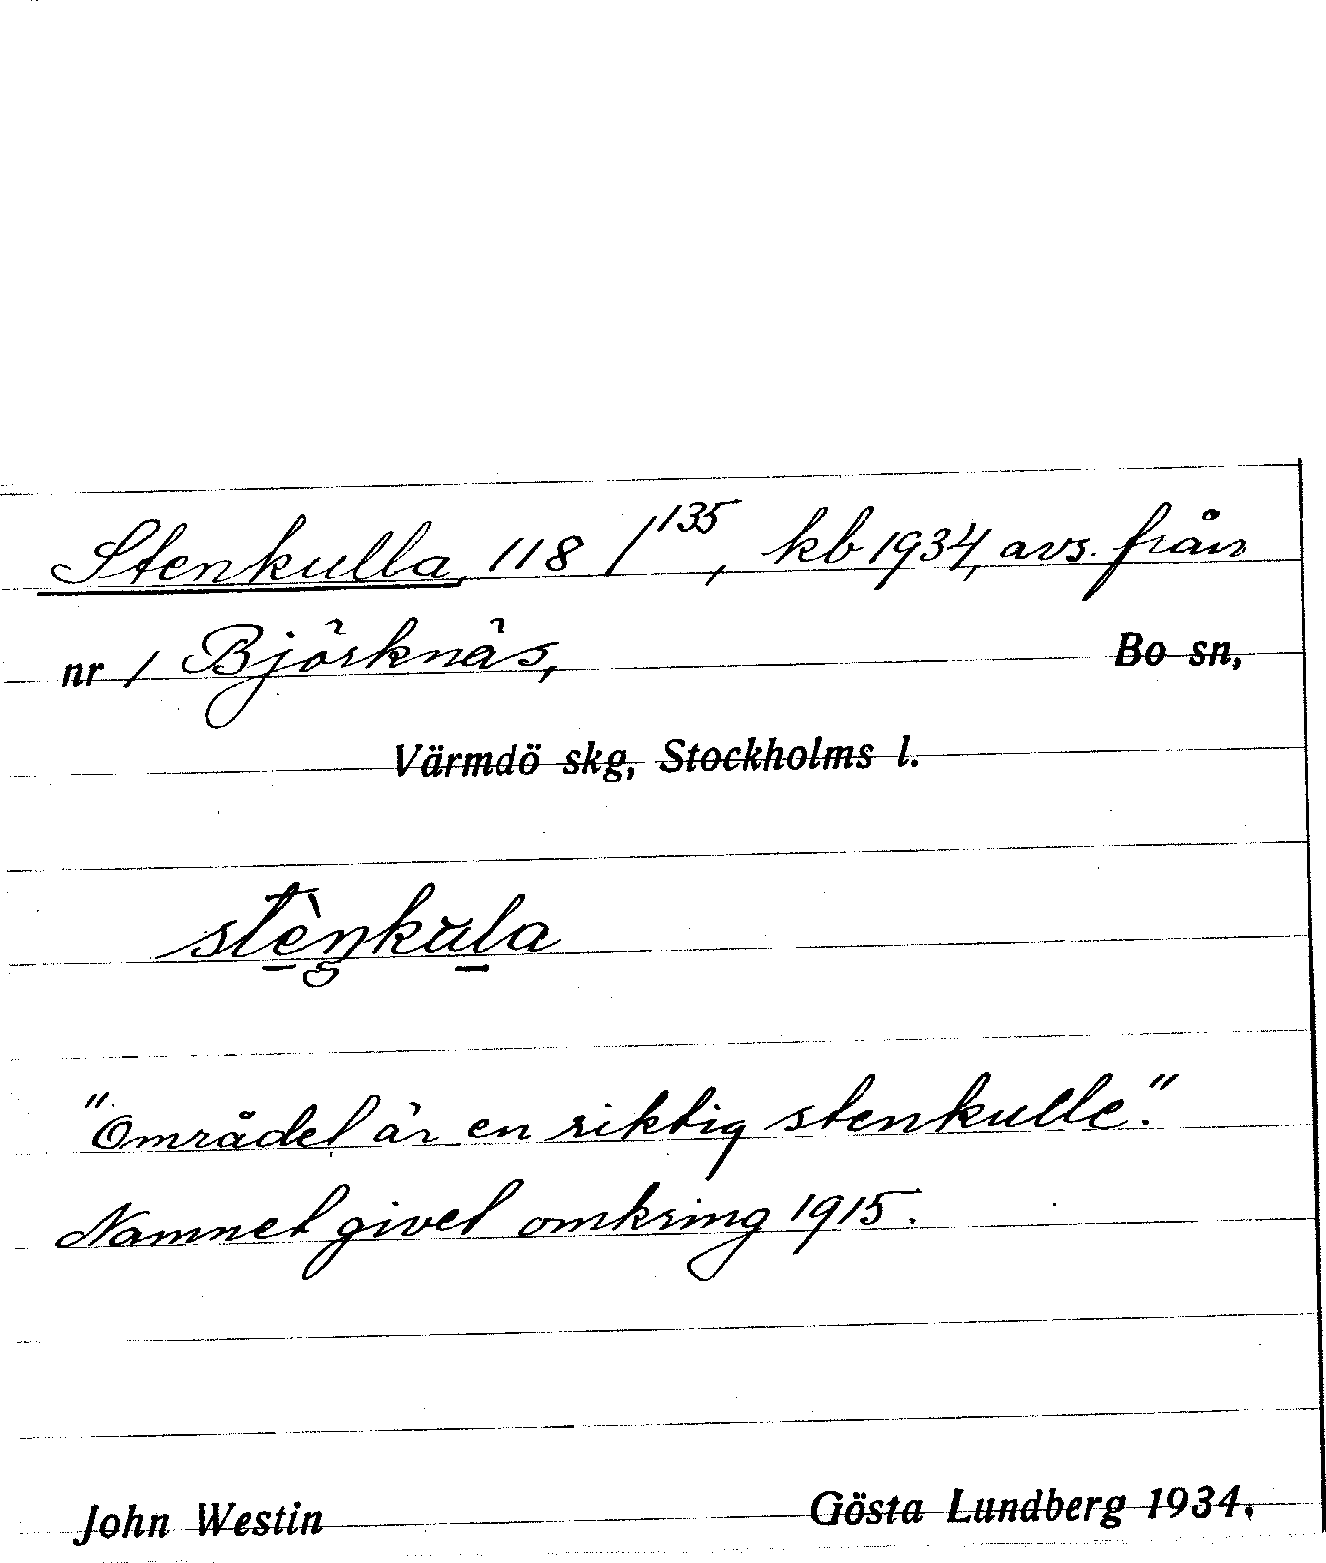 Stenkulla, 118/135, kb 1934, avs. från
nr 1 Björknäs, Bo sn,
Värmdö skg, Stockholms l.
stè̠ŋku̠la
"Området är en riktig stenkulle."
Namnet givet omkring 1915.
John Westin Gösta Lundberg 1934.